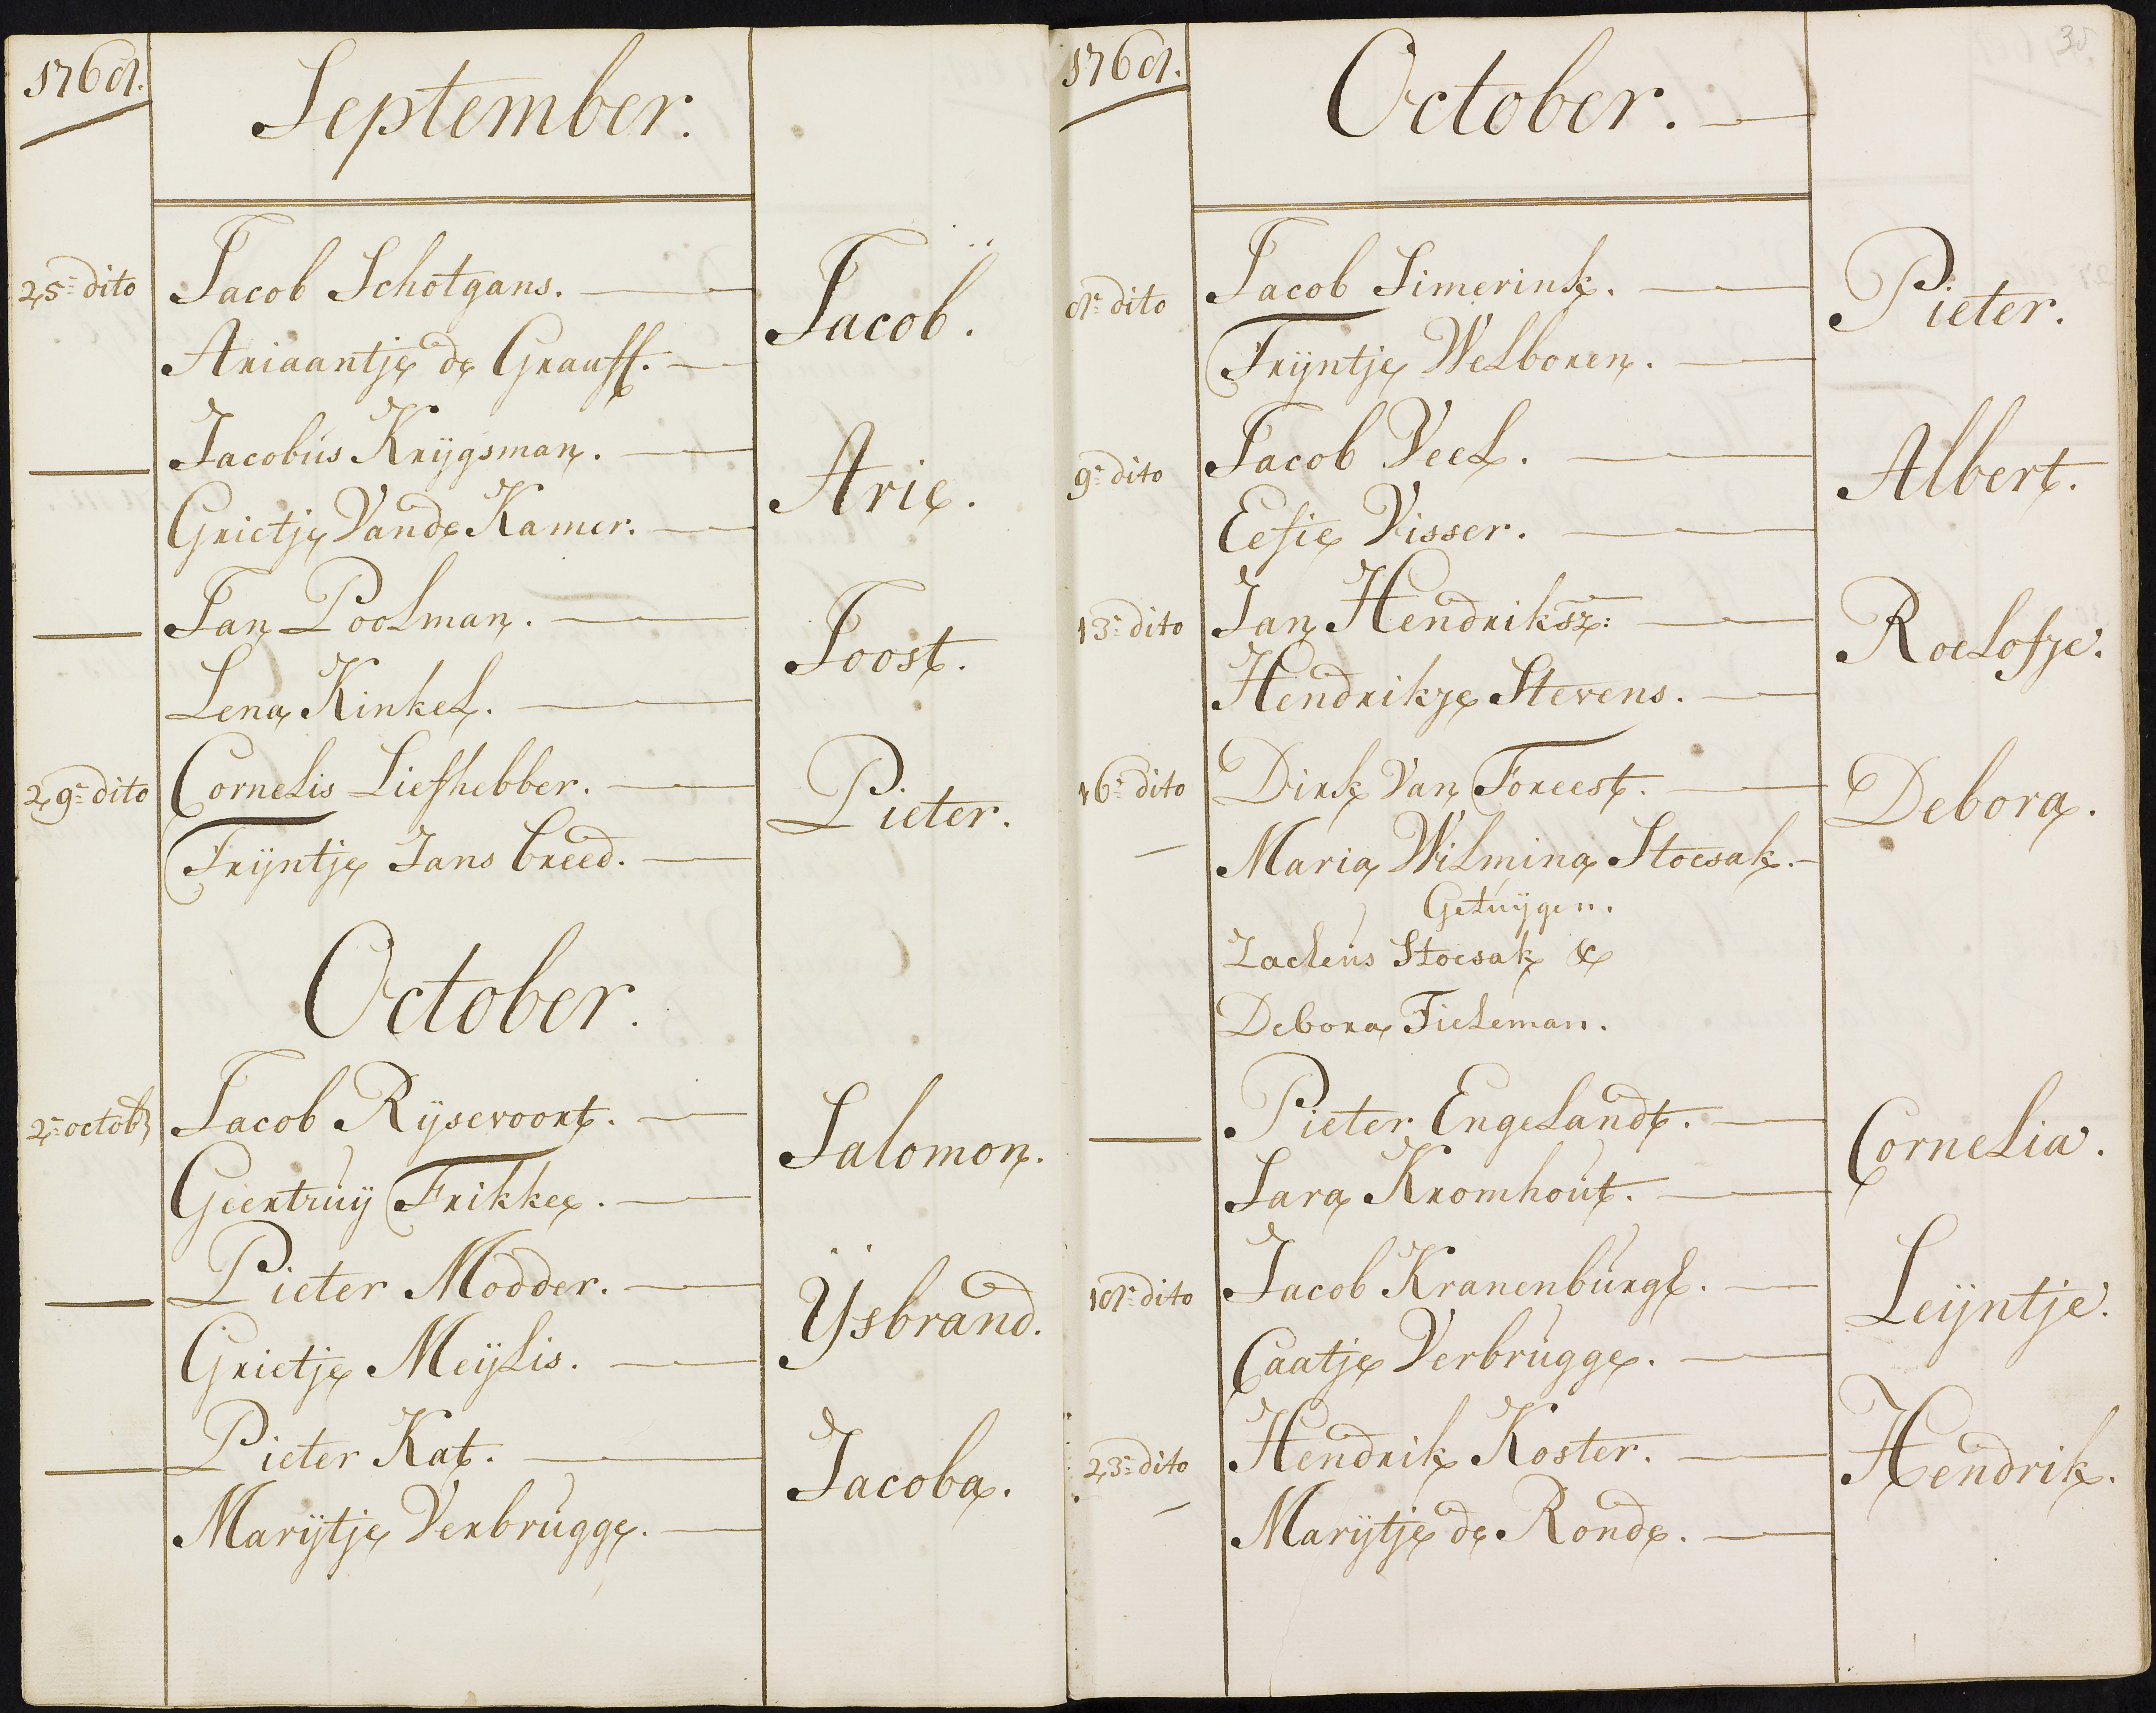 1768.
September.
25.= dito Jacob Schotgans. Jacob.
Ariaantje de Grauff.
Jacobus Krijgsman. Arie.
Grietje Vande Kamer.
Jan Poolman. Joost.
Lena Kinkel.
29.= dito Cornelis Liefhebber. Pieter.
Trijntje Jans Creed.
October.
2.= octobr Jacob Rijsevoort. Salomon.
Geertruij Frikke.
Pieter Modder. IJsbrand.
Grietje Meijlis.
Pieter Kat. Jacoba.
Marijtje Verbrugge.
1768.
35.
October.
8.= dito Jacob Simerink. Pieter.
Trijntje Welboren.
9.= dito Jacob Veel. Albert.
Eefie Visser.
13.= dito Jan Hendriksz: Roelofje.
Hendrikje Stevens.
16.= dito Dirk Van Foreest. Debora.
Maria Wilmina Stoesak.
Getuijgen.
Zacheus Stoesak &
Debora Tieleman.
Pieter Engelandt. Cornelia.
Sara Kromhout.
18.= dito Jacob Kranenburgh. Leijntje.
Caatje Verbrugge.
23.= dito Hendrik Koster. Hendrik.
Marijtje de Ronde.